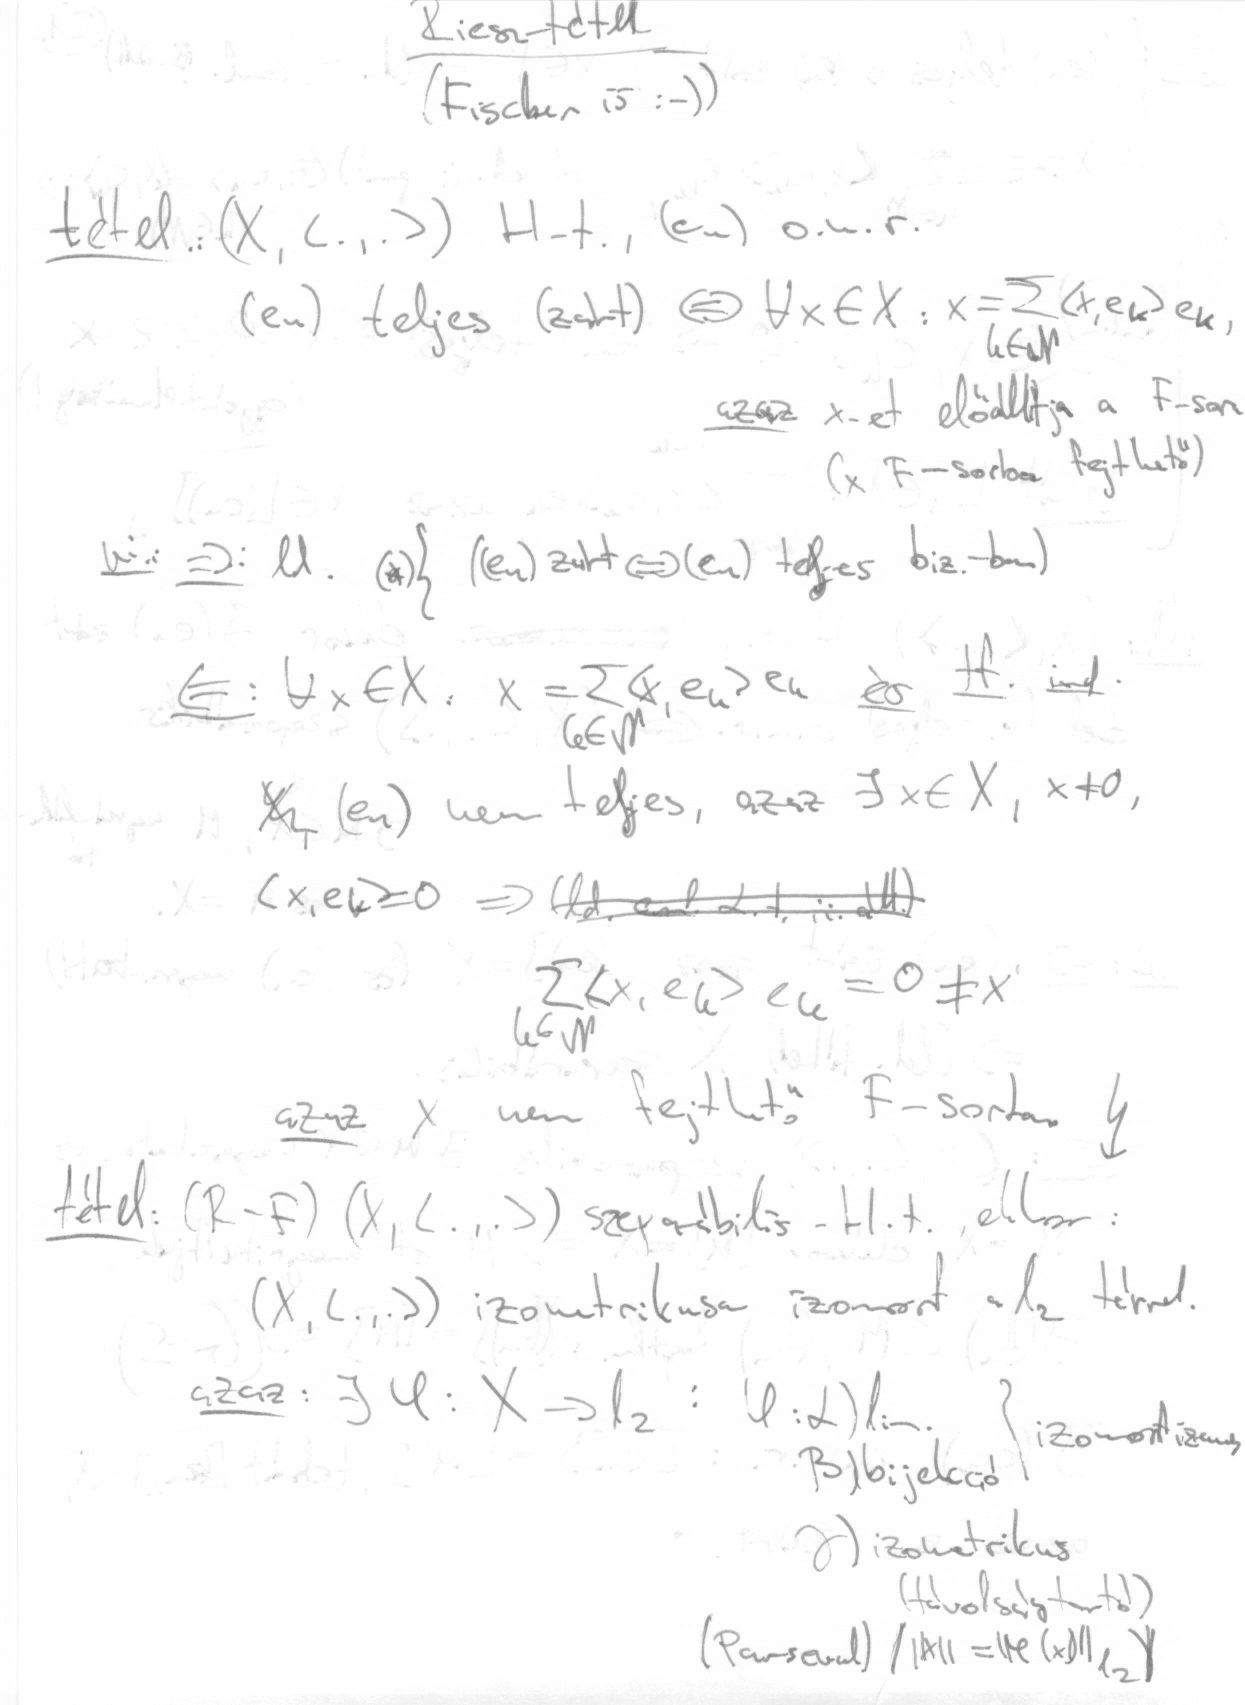 Riesz-tétel
(Fischer is :-))
tétel.: (X, <.,.>) H-t., (en) o.n.r.
(en) teljes (zárt) ⇔ ∀x∈X: x = Σ <x,ek> ek,
k∈N
azaz x-et előállítja a F-sor
(x F-sorba fejthető)
biz.: ⇒: ld. (*) { ((en) zárt ⇔ (en) teljes biz.-ban)
⇐: ∀x∈X: x = Σ <x,ek> ek és Tf. ind.
k∈N
(en) nem teljes, azaz ∃x∈X, x≠0,
<x,ek>=0 ⇒
Σ <x,ek> ek = 0 ≠ x
k∈N
azaz x nem fejthető F-sorba ↯
tétel: (R-F) (X, <.,.>) szeparábilis H.t., ekkor:
(X, <.,.>) izometrikusan izomorf a l2 térrel.
azaz: ∃φ: X → l2 : φ: α) lin.
β) bijekció } izomorfizmus
γ) izometrikus
(távolságtartó)
(Parseval) /||x|| = ||φ(x)||l2/